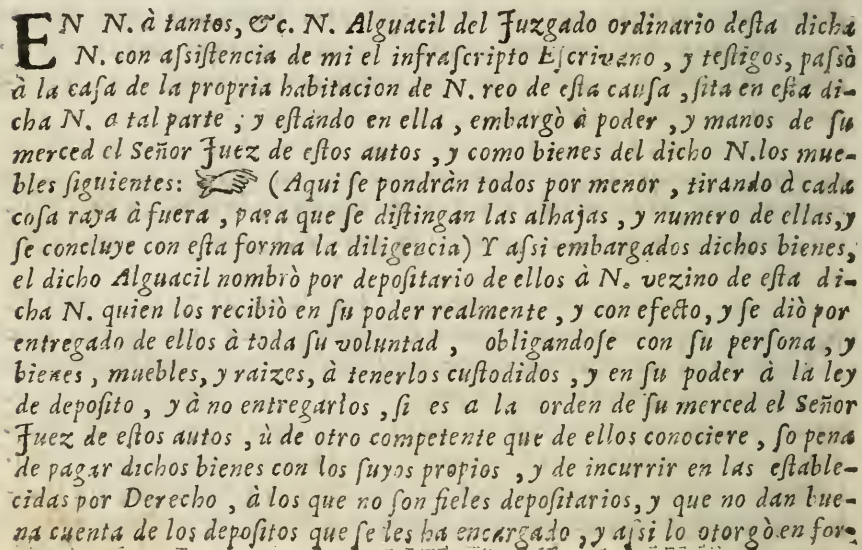 EN N. à tantos, &c. N. Alguacil del Juzgado ordinario desta dicha
N. con assistencia de mi el infrascripto Escrivano, y testigos, passò
à la casa de la propria habitacion de N. reo de esta causa, sita en esta di-
cha N. a tal parte; y estando en ella, embargò à poder, y manos de su
merced el Señor Juez de estos autos, y como bienes del dicho N. los mue-
bles siguientes: ☞ (Aqui se pondràn todos por menor, tirando à cada
cosa raya à fuera, para que se distingan las alhajas, y numero de ellas, y
se concluye con esta forma la diligencia) Y assi embargados dichos bienes,
el dicho Alguacil nombrò por depositario de ellos à N. vezino de esta di-
cha N. quien los recibiò en su poder realmente, y con efecto, y se diò por
entregado de ellos à toda su voluntad, obligandose con su persona, y
bienes, muebles, y raizes, à tenerlos custodidos, y en su poder à la ley
de deposito, y à no entregarlos, si es a la orden de su merced el Señor
Juez de estos autos, ù de otro competente que de ellos conociere, so pena
de pagar dichos bienes con los suyos propios, y de incurrir en las estable-
cidas por Derecho, à los que no son fieles depositarios, y que no dan bue-
na cuenta de los depositos que se les ha encargado, y assi lo otorgò en for-